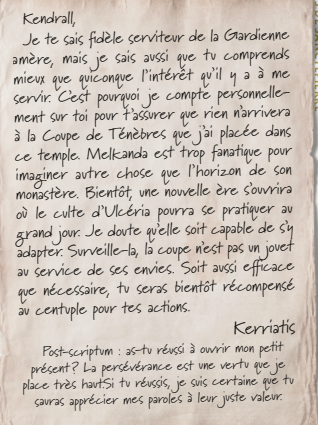 Kendrall,
Je te sais fidèle serviteur de la Gardienne
amère, mais je sais aussi que tu comprends
mieux que quiconque l'intérêt qu'il y a à me
servir. C'est pourquoi je compte personnelle-
ment sur toi pour t'assurer que rien n'arrivera
à la Coupe de Ténèbres que j'ai placée dans
ce temple. Melkanda est trop fanatique pour
imaginer autre chose que l'horizon de son
monastère. Bientôt, une nouvelle ère s'ouvrira
où le culte d'Ulcéria pourra se pratiquer au
grand jour. Je doute qu'elle soit capable de s'y
adapter. Surveille-la, la coupe n'est pas un jouet
au service de ses envies. Soit aussi efficace
que nécessaire, tu seras bientôt récompensé
au centuple pour tes actions.
Kerriatis
Post-scriptum : as-tu réussi à ouvrir mon petit
présent ? La persévérance est une vertu que je
place très haut.Si tu réussis, je suis certaine que tu
sauras apprécier mes paroles à leur juste valeur.